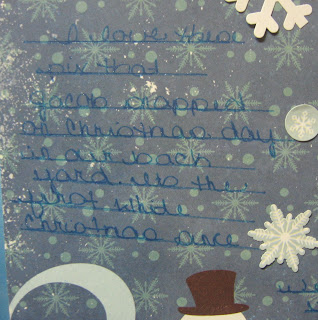 I love
that
Jacob snapped
on Christmas day
in our back
yard. Its the
first white
Christmas since